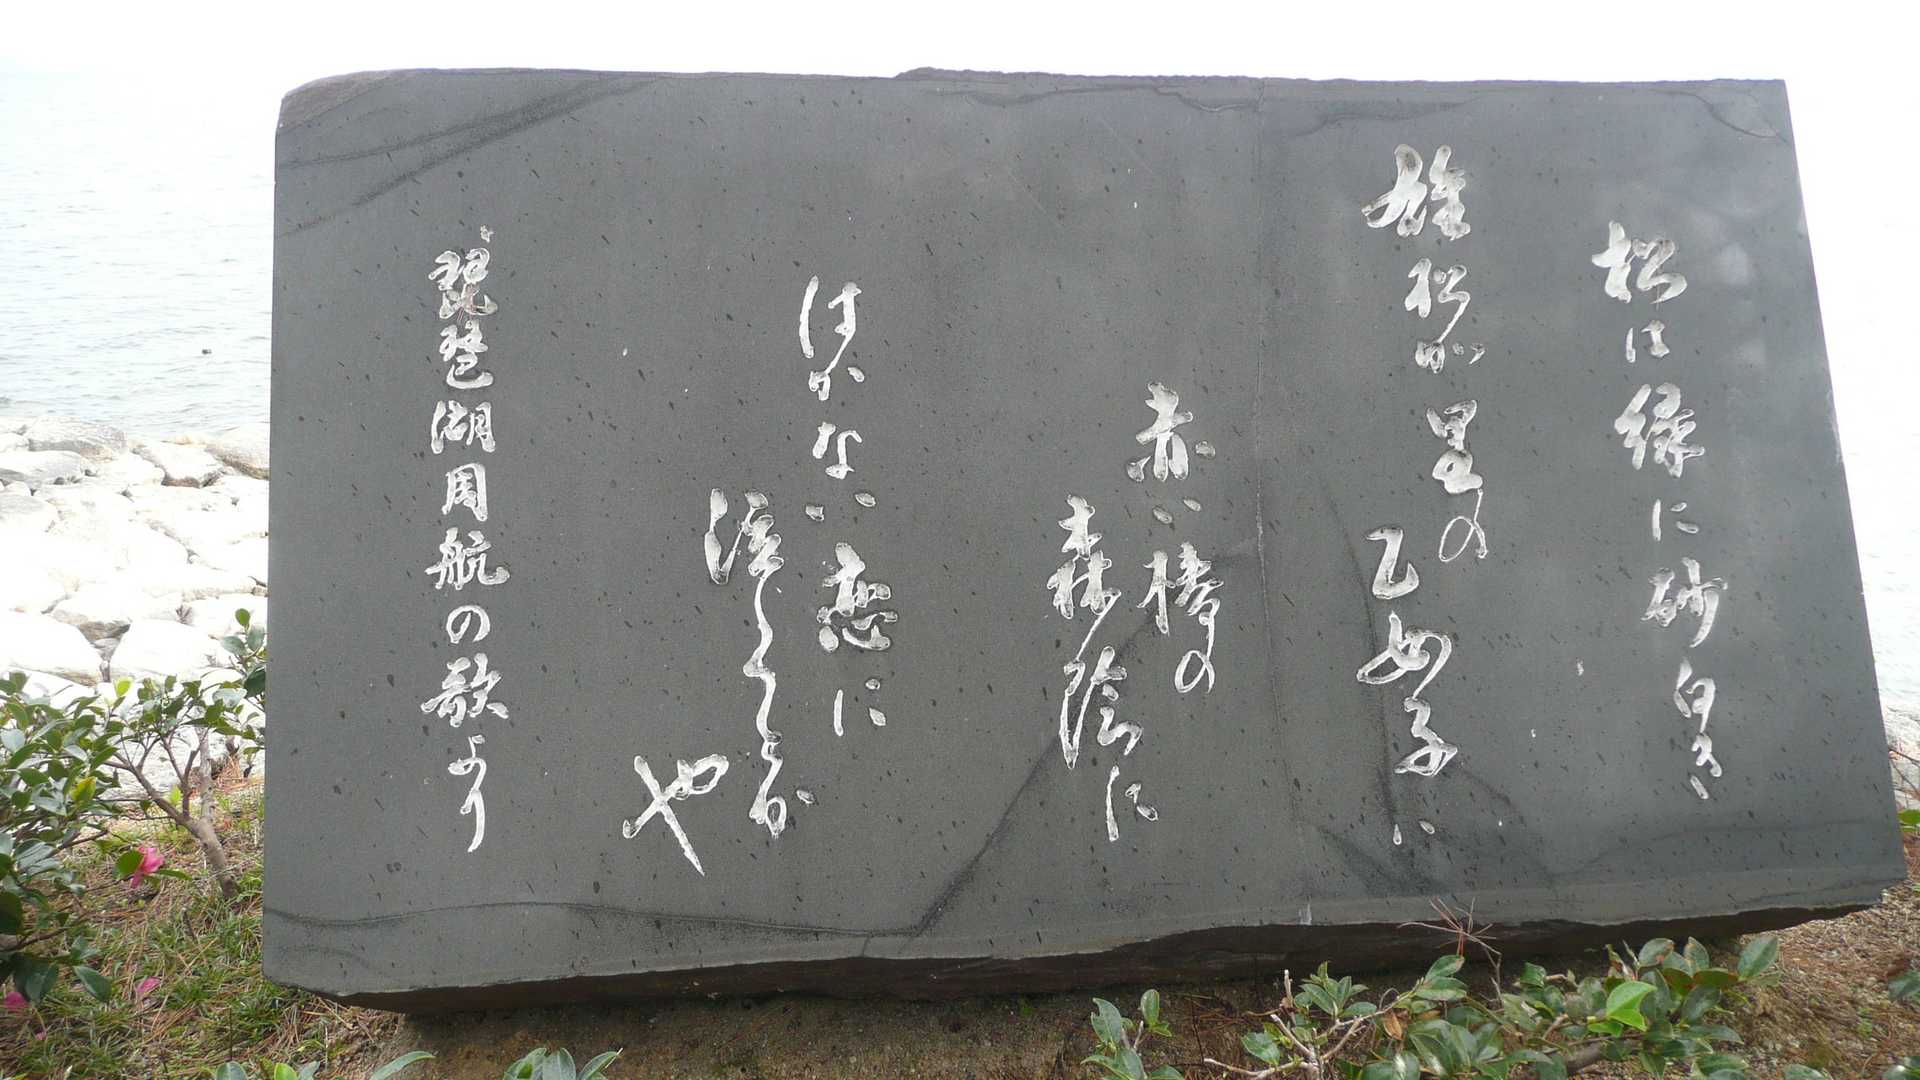 松は緑に砂白き
雄松が里の乙女子は
赤い椿の
森蔭に
はかない恋に
泣くとか
や
琵琶湖周航の歌より